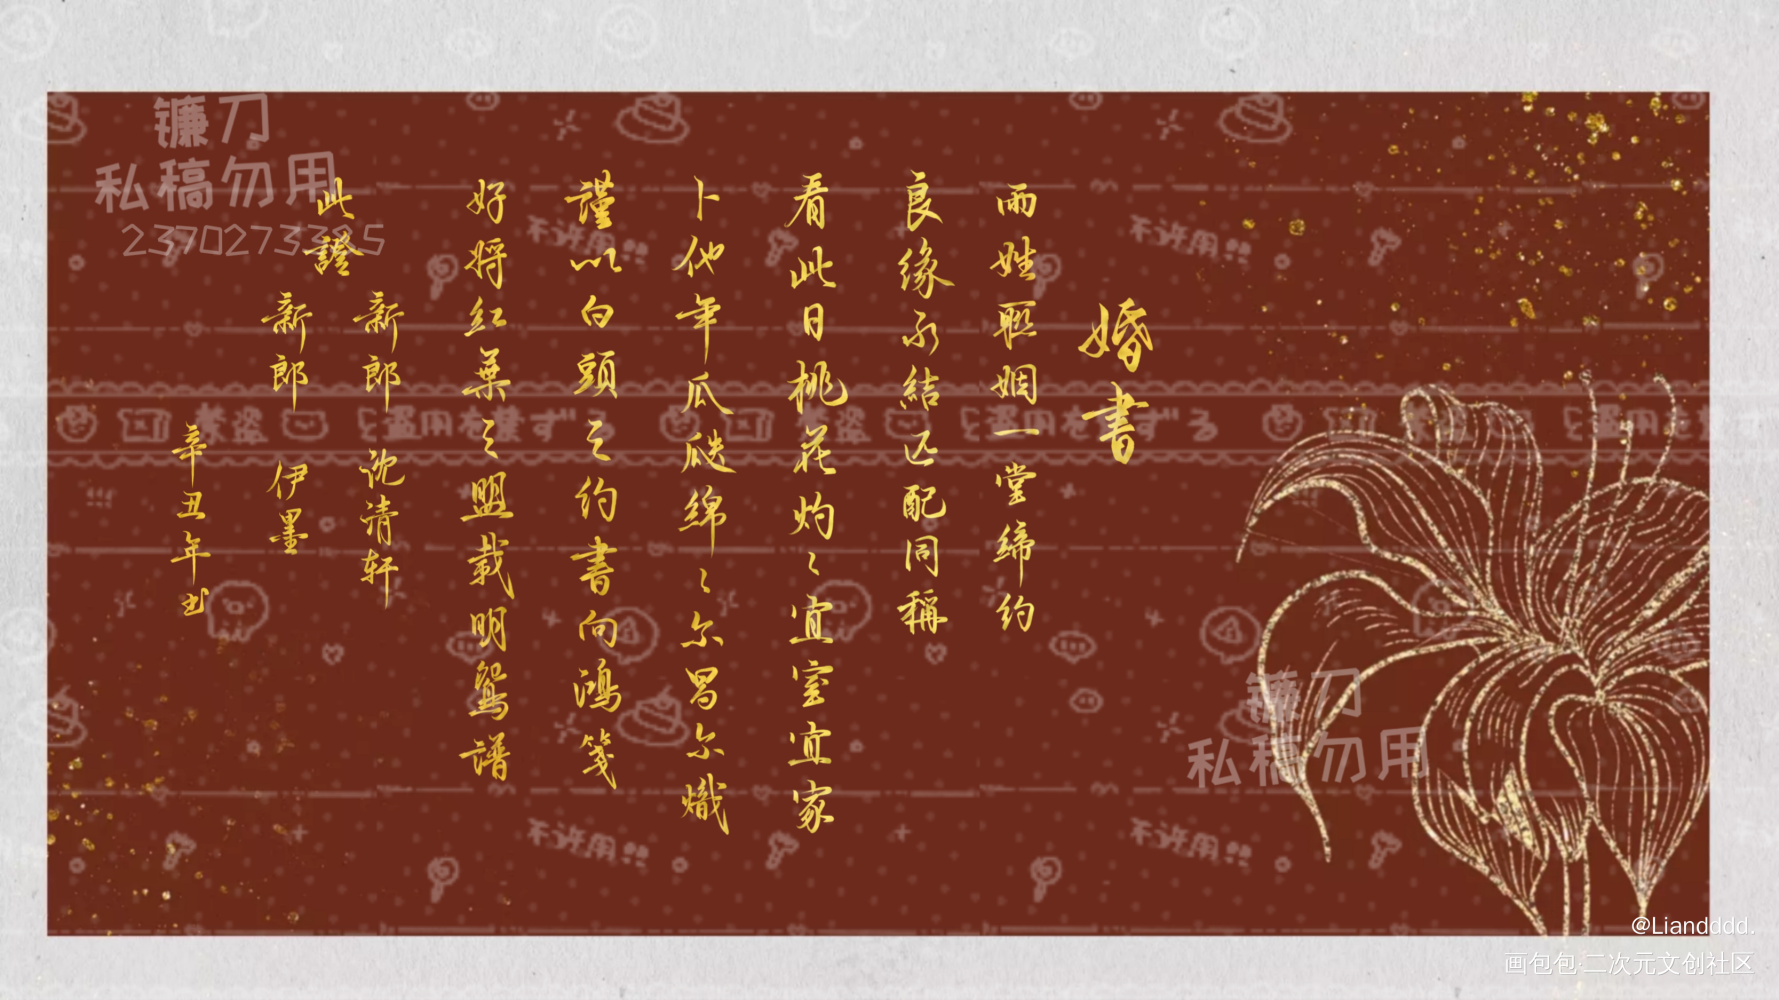 婚書
両姓聯姻一堂締约
良缘永結匹配同稱
看此日桃花灼々宜室宜家
卜他年瓜瓞綿々尔昌尔熾
謹以白頭之约書向鴻箋
好将红葉之盟载明鴛譜
此證
新郎 沈清轩
新郎 伊墨
辛丑年书
镰刀
私稿勿用
2370273325
镰刀
私稿勿用
不许用!!
不许用!!
不许用!!
不许用!!
@Liandddd.
画包包·二次元文创社区